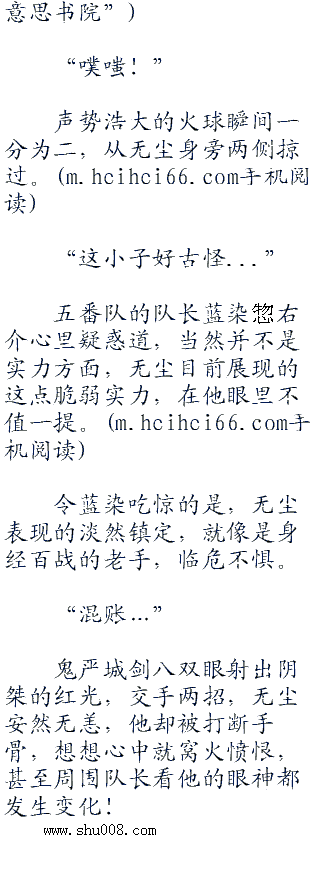 意思书院”)
“噗嗤！”
声势浩大的火球瞬间一
分为二，从无尘身旁两侧掠
过。(m.hcihci66.com手机阅
读)
“这小子好古怪...”
五番队的队长蓝染惣右
介心里疑惑道，当然并不是
实力方面，无尘目前展现的
这点脆弱实力，在他眼里不
值一提。(m.hcihci66.com手
机阅读)
令蓝染吃惊的是，无尘
表现的淡然镇定，就像是身
经百战的老手，临危不惧。
“混账…”
鬼严城剑八双眼射出阴
桀的红光，交手两招，无尘
安然无恙，他却被打断手
骨，想想心中就窝火愤恨，
甚至周围队长看他的眼神都
发生变化！
www.shu008.com